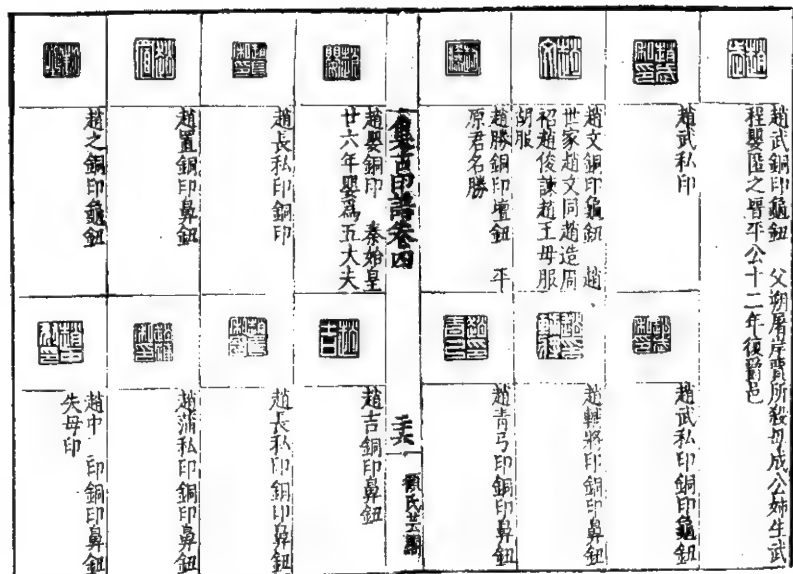 趙武銅印龜鈕 父朔屠岸賈所殺母成公姊生武
程嬰匿之晉平公十二年復爵邑
趙武私印
趙武私印銅印龜鈕
趙文銅印龜鈕 趙
世家趙文同趙造周
袑趙俊諫趙王毋服
胡服
趙印銅印鼻鈕
趙勝銅印壇鈕 平
原君名勝
趙青弓印銅印鼻鈕
集古印譜卷四
顧氏芸閣
趙嬰銅印 秦始皇
廿六年嬰為五大夫
趙吉銅印鼻鈕
趙長私印銅印
趙長私印銅印鼻鈕
趙置銅印鼻鈕
趙蒲私印銅印鼻鈕
趙之銅印龜鈕
趙中 印銅印鼻鈕
失母印